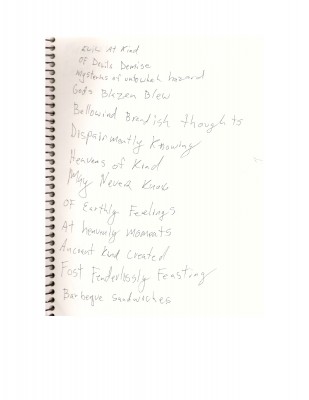 At Kind
Of Devils Demise
Mysteries of hazzard
Gods Blazen Blew
Bellowind Brandish thoughts
Dispairmently Knowing
Heavens of Kind
May Never Know
OF Earthly Feelings
At heavenly moments
Ancient Kind Created
Fost Fenderlossly Feasting
Barbeque Sandwiches